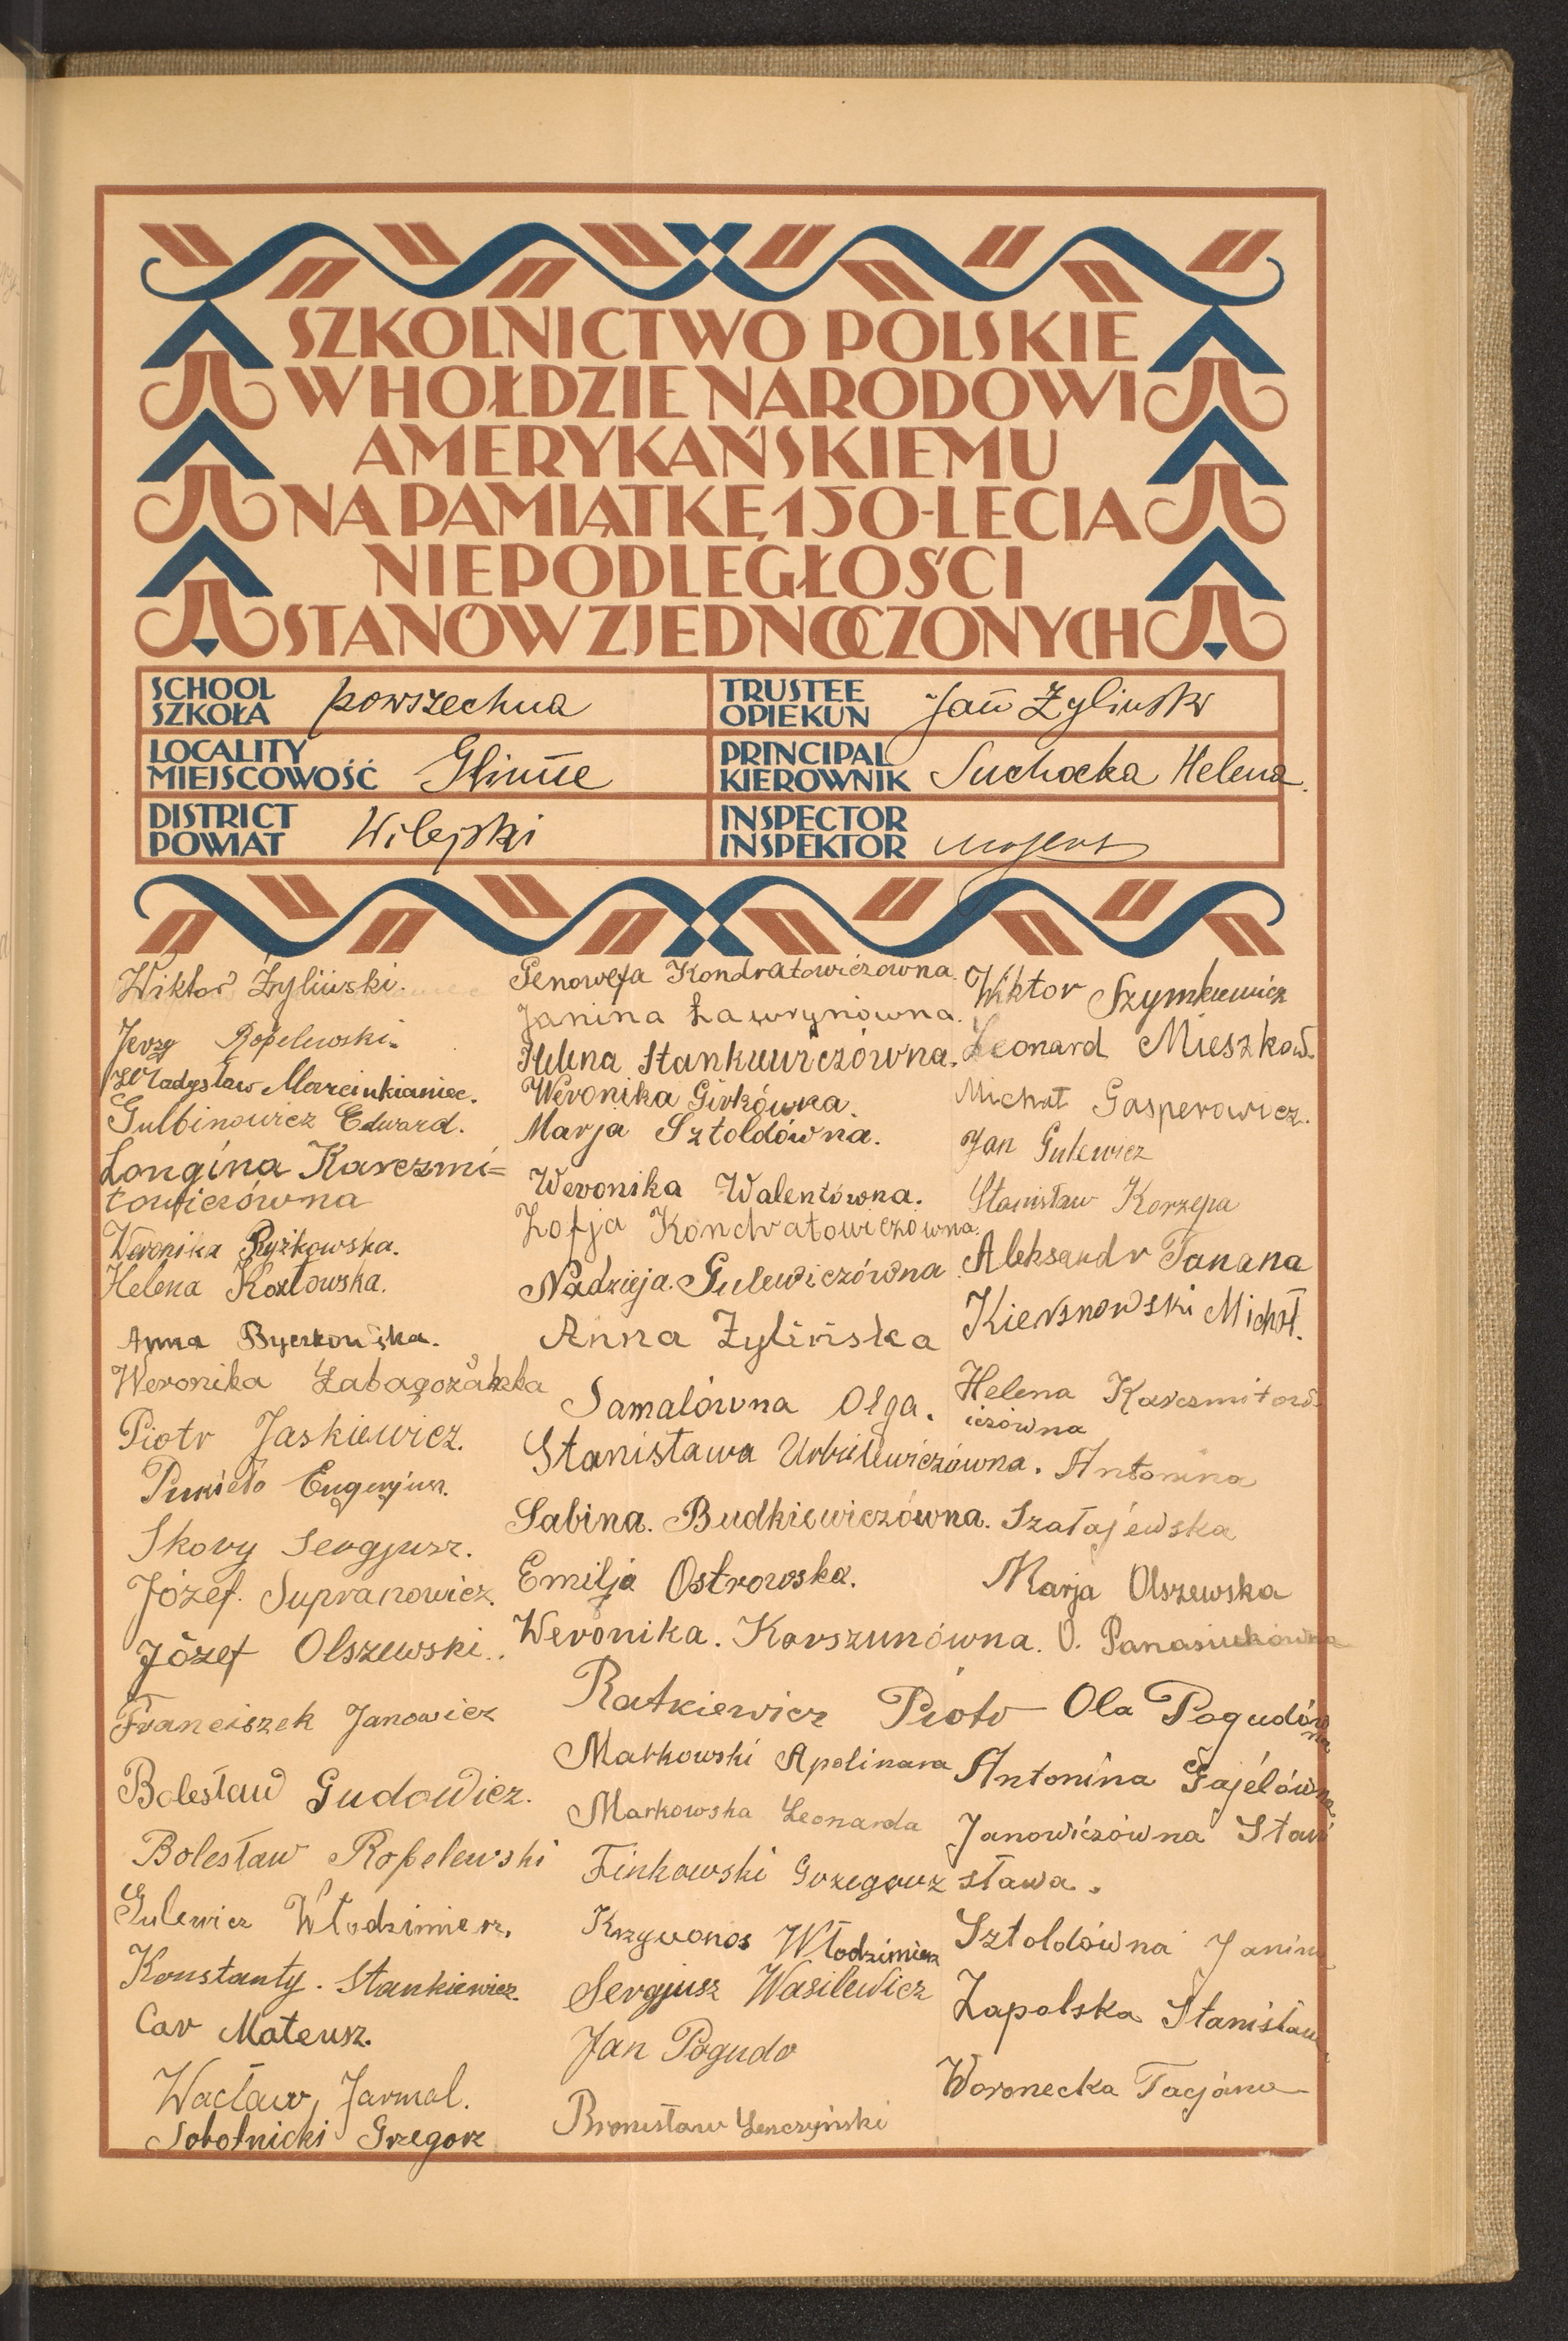 SZKOLNICTWO POLSKIE
W HOŁDZIE NARODOWI
AMERYKAŃSKIEMU
NA PAMIĄTKĘ 150-LECIA
NIEPODLEGŁOŚCI
STANÓW ZJEDNOCZONYCH
SCHOOL
SZKOŁA powszechna
TRUSTEE
OPIEKUN Jan Żyliński
LOCALITY
MIEJSCOWOŚĆ Glinne
PRINCIPAL
KIEROWNIK Suchocka Helena.
DISTRICT
POWIAT Wilejski
INSPECTOR
INSPEKTOR
Wiktor Żyliński.
Jerzy Ropelewski.
Władysław Marcinkianiec.
Gulbinowicz Edward.
Longina Karczmi=
towiczówna
Weronika Ryżkowska.
Helena Kozłowska.
Anna
Weronika
Piotr Jaskiewicz.
Pukieło Eugenjusz.
Skory Sergjusz.
Józef. Supranowicz.
Józef Olszewski.
Franciszek Janowicz
Bolesław Gudowicz.
Bolesław Ropelewski
Gulewicz Włodzimierz.
Konstanty. Stankiewicz.
Car Mateusz.
Wacław Jarmal.
Sobotnicki Grzegorz
Genowefa Kondratowiczówna.
Janina Ławrynówna.
Helena Stankiewiczówna.
Weronika Girkówna.
Marja Sztoldówna.
Weronika Walentówna.
Zofja Kondratowiczówna.
Nadzieja. Gulewiczówna.
Anna Żylińska
Samalówna Olga.
Stanisława Urbilewiczówna.
Sabina. Budkiewiczówna.
Emilja Ostrowska.
Weronika. Korszunówna.
Ratkiewicz Piotr
Markowski Apolinara
Markowska Leonarda
Finkowski Grzegorz
Krzywonos Włodzimierz
Sergjusz Wasilewicz
Jan Pogudo
Bronisław Lenczyński
Wiktor Szymkiewicz
Leonard Mieszkow.
Michał Gasperowicz.
Jan Gulewicz
Stanisław Korzepa
Aleksandr Tanana
Kiersnowski Michał.
Helena Karczmitow
iczówna
Antonina
Szałajewska
Marja Olszewska
O. Panasiukówna
Ola Pogudów
na
Antonina Gajelówna.
Janowiczówna Stani
sława.
Sztoldówna Janina
Zapolska Stanisław
Woronecka Tacjana